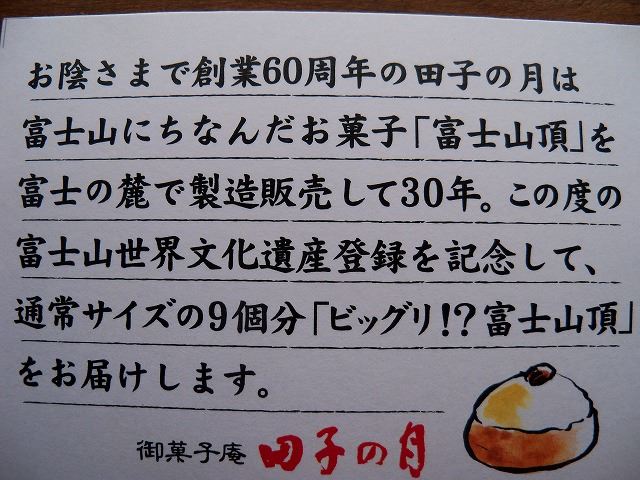 お陰さまで創業60周年の田子の月は
富士山にちなんだお菓子「富士山頂」を
富士の麓で製造販売して30年。この度の
富士山世界文化遺産登録を記念して、
通常サイズの9個分「ビッグリ!?富士山頂」
をお届けします。
御菓子庵 田子の月